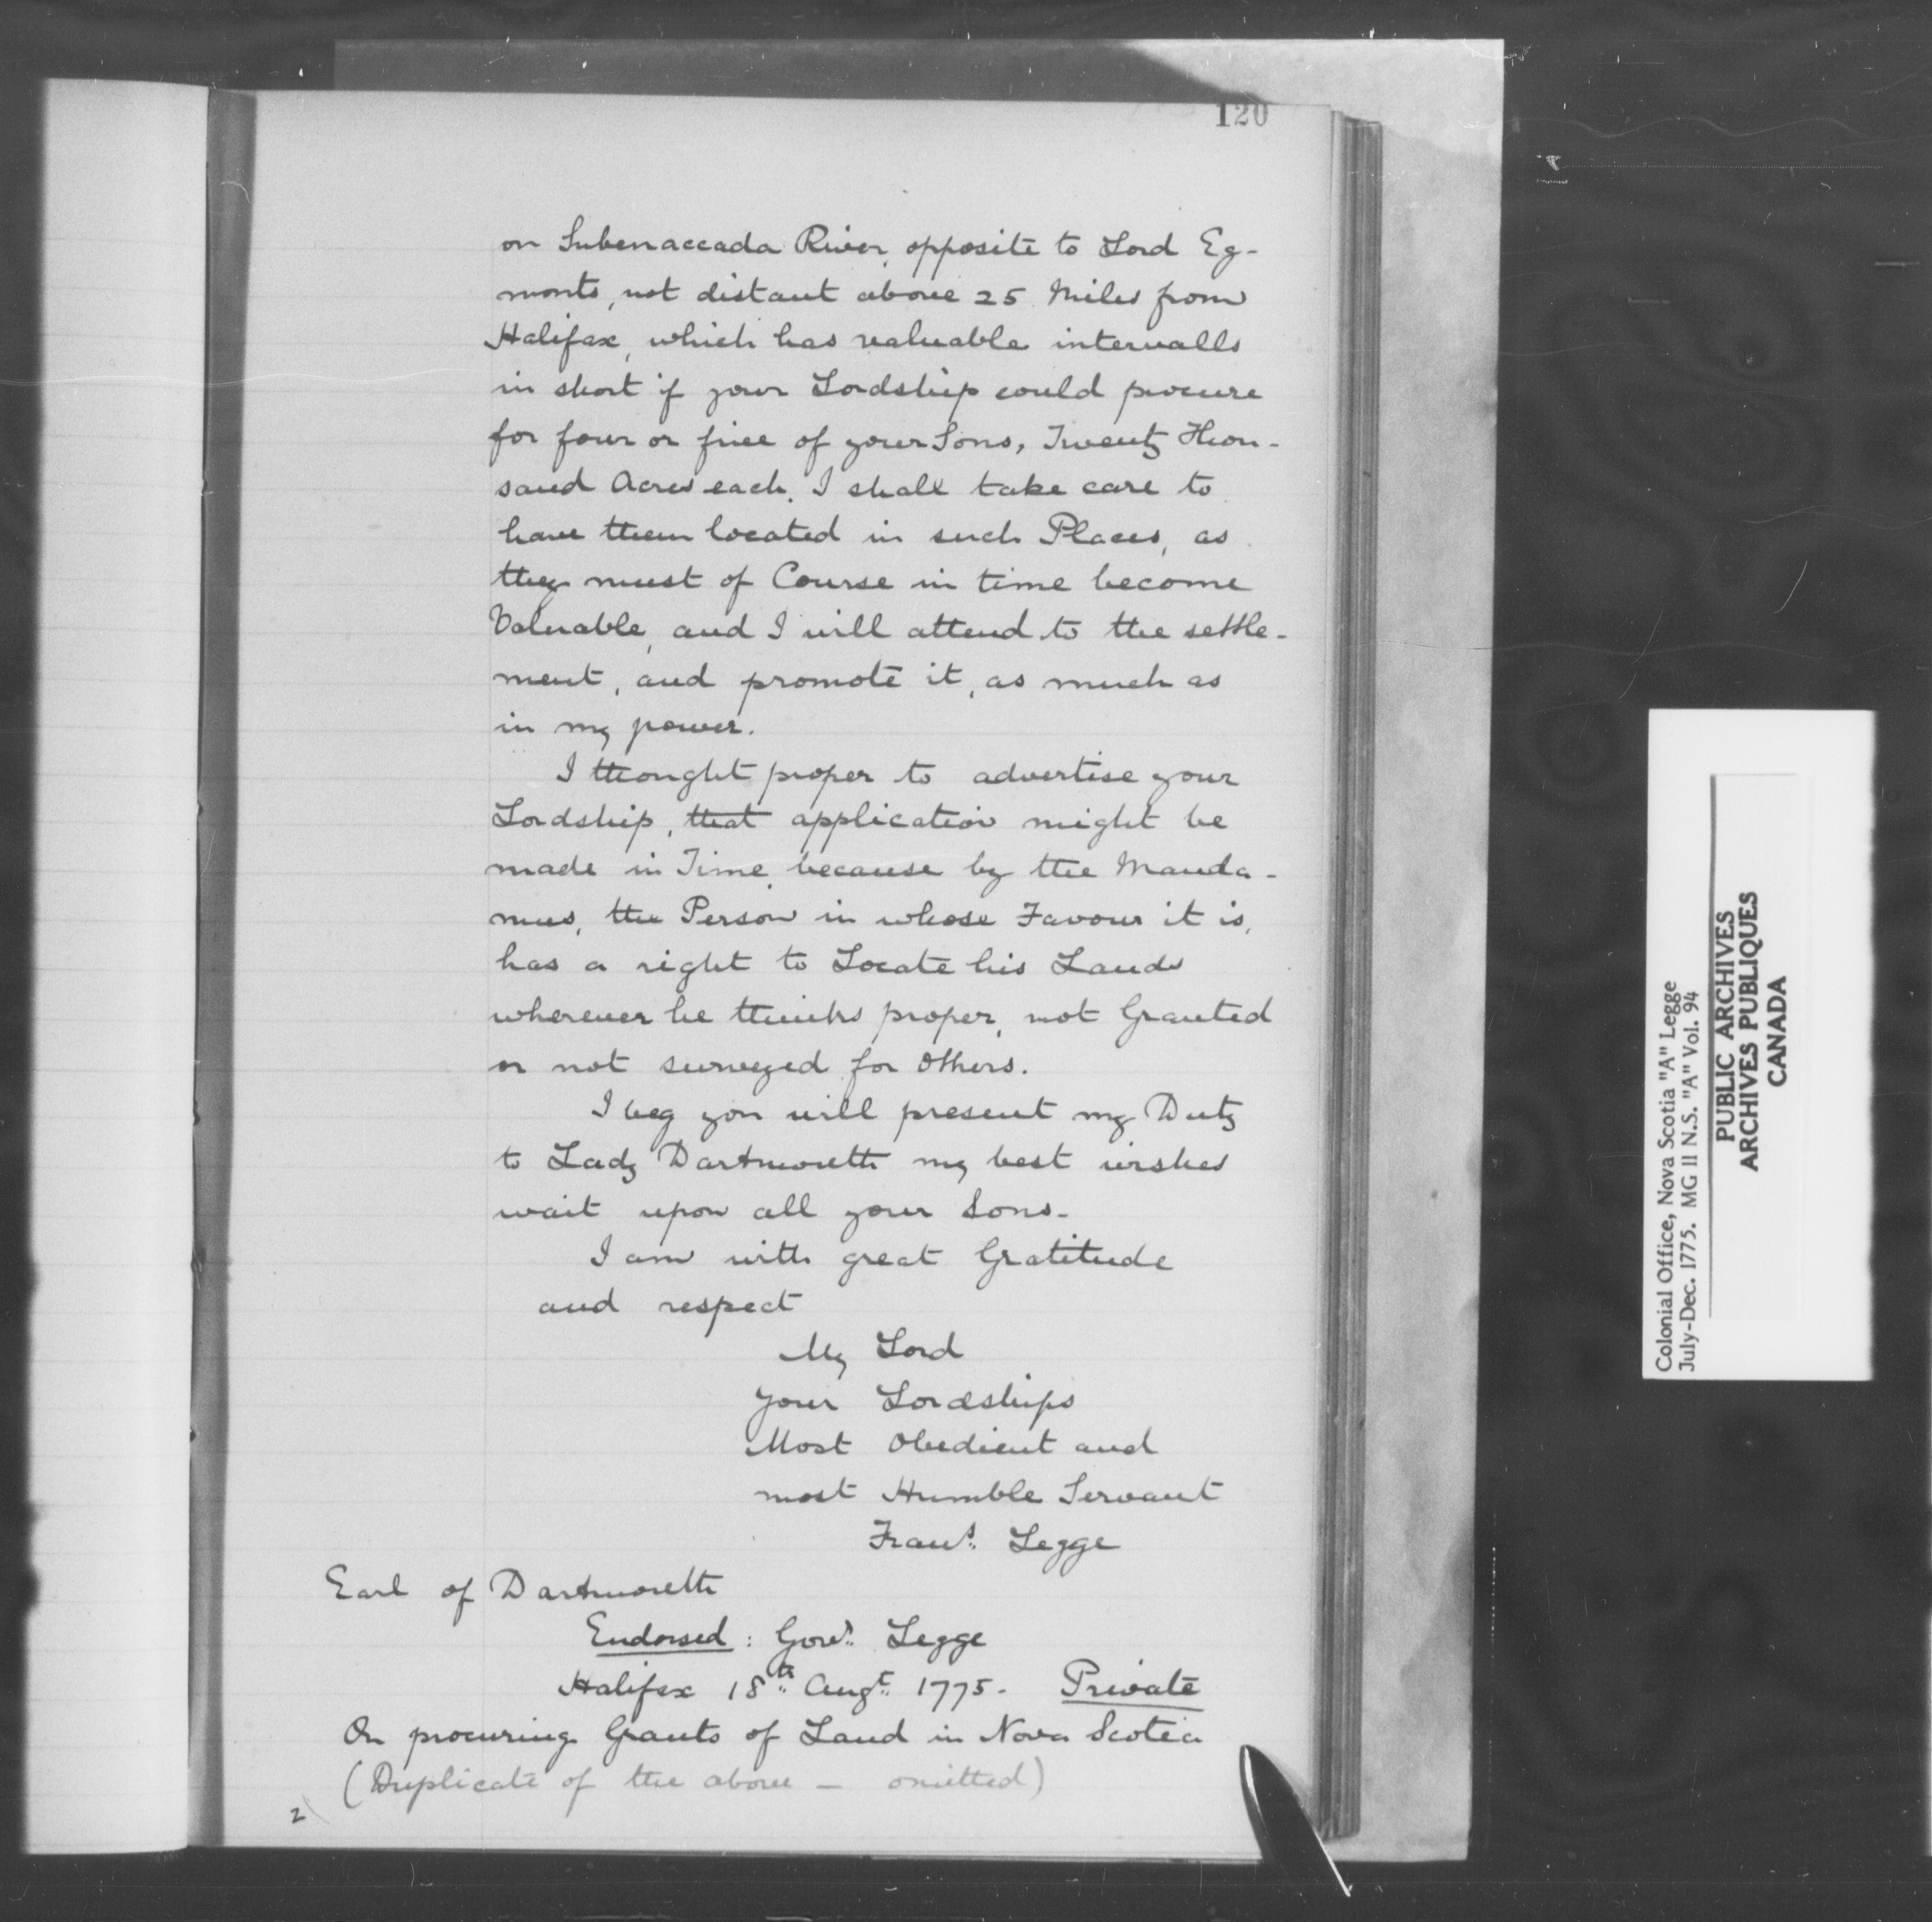 120
on Subenaccada River, opposite to Lord Eg-
monts, not distant above 25 Miles from
Halifax, which has valuable intervalls
in short if your Lordship could procure
for four or five of your Sons, Twenty Thou-
sand Acres each, I shall take care to
have them located in such Places, as
they must of Course in time become
Valuable, and I will attend to the settle-
ment, and promote it, as much as
in my power.
I thought proper to advertise your
Lordship, that application might be
made in Time, because by the Manda-
mus, the Person in whose Favour it is,
has a right to Locate his Lands
wherever he thinks proper, not Granted
or not surveyed for others.
I beg you will present my Duty
to Lady Dartmouth my best wishes
wait upon all your Sons-
I am with great Gratitude
and respect
My Lord
your Lordships
Most Obedient and
most Humble Servant
Frans. Legge
Earl of Dartmouth
Endorsed: Govr. Legge
Halifax 18th Augt. 1775. Private
On procuring Grants of Land in Nova Scotia
(Duplicate of the above - omitted)
2
Colonial Office, Nova Scotia "A" Legge
July-Dec. 1775. MG 11 N.S. "A" Vol. 94
PUBLIC ARCHIVES
ARCHIVES PUBLIQUES
CANADA